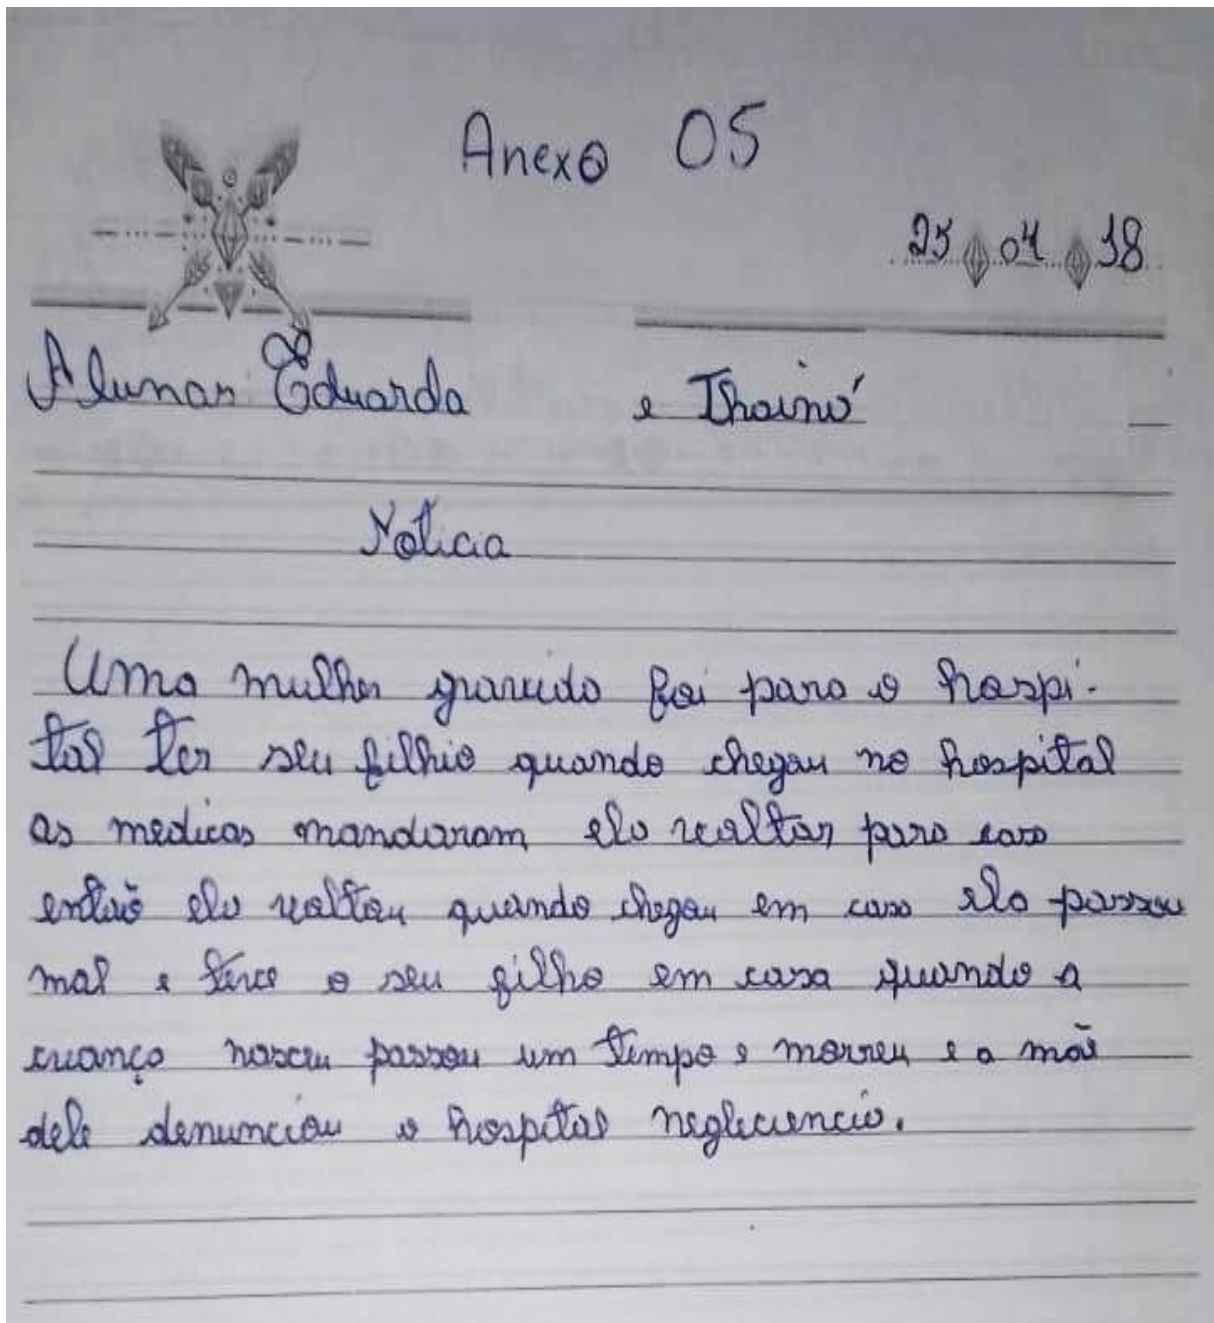 Anexo 05
25 04 18
Alunas Eduarda e Thainá
Noticia
Uma mulher gravida foi para o hospi-
tal ter seu filhio quando chegou no hospital
as medicas mandaram ela voltar para casa
então ela voltou quando chegou em casa ela passou
mal e teve o seu filho em casa quando a
criança nasceu passou um tempo e morreu e a mãe
dele denunciou o hospital negleciencia.